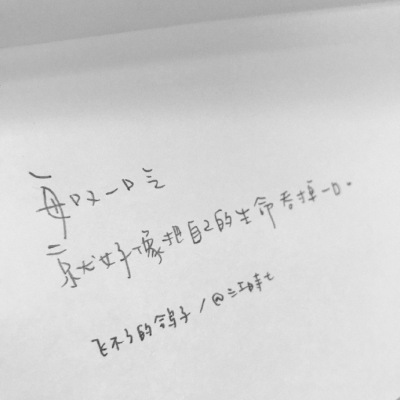 每叹一口气
就好像把自己的生命吞掉一口.
飞不了的鸽子 / @